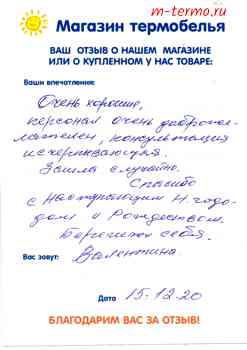 m-termo.ru
Магазин термобелья
ВАШ ОТЗЫВ О НАШЕМ МАГАЗИНЕ
ИЛИ О КУПЛЕННОМ У НАС ТОВАРЕ:
Ваши впечатления:
Очень хорошие,
персонал очень доброже-
лателен, консультация
исчерпывающая.
Зашла случайно.
Спасибо
с наступающим Н годо-
дом и Рождеством.
Берегите себя.
Вас зовут: Валентина
Дата 15.12.20
БЛАГОДАРИМ ВАС ЗА ОТЗЫВ!